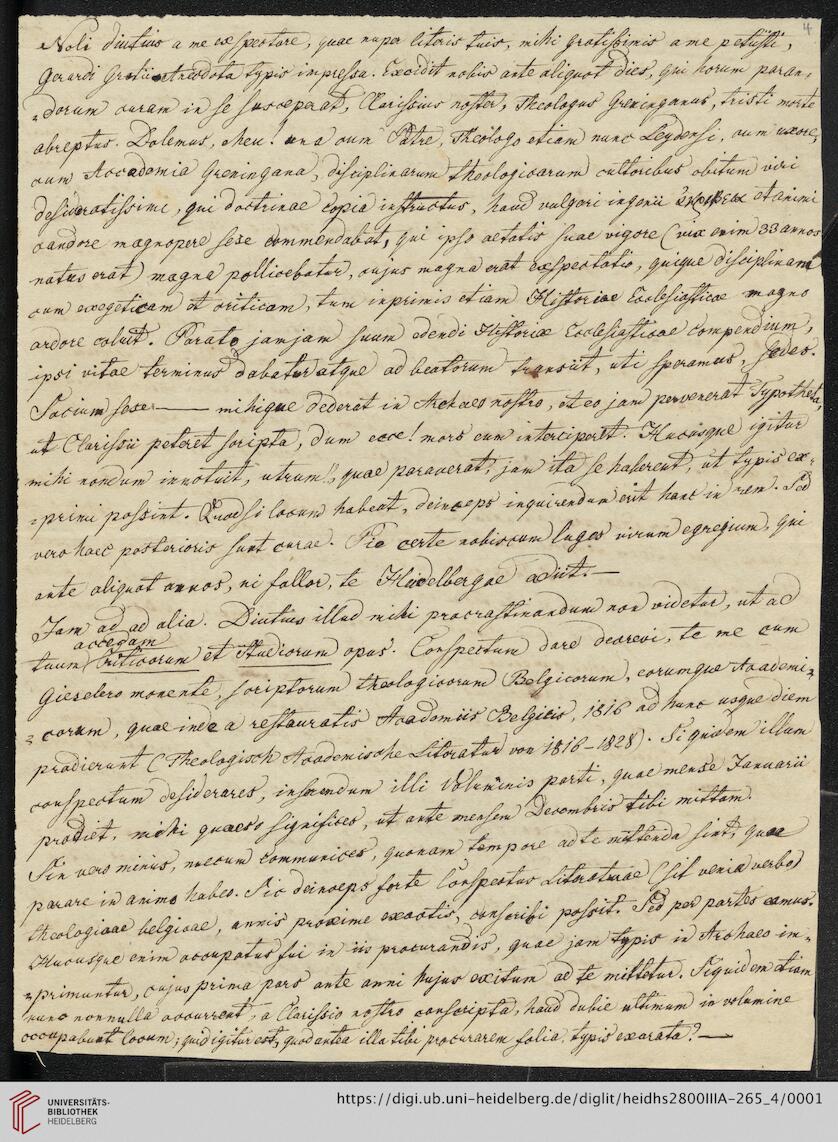 4
Noli diutius a me exspectare, quae nuper literis tuis, mihi gratissimis a me petiisti,
Gerardi Grotii Anecdota typis impressa. Excidit nobis ante aliquot dies, qui horum paran-
-dorum curam in se susceperat, Clarissius noster, Theologus Groninganus, tristi morte
abreptus. Dolemus, cheu! una cum Patre, Theologo etiam nunc Leydensi, cum uxore,
cum Accademia Groningana, disciplinarum theologicarum cultoribus obitum viri
desideratissimi, qui doctrinae copia instructus, haud vulgari ingenii et animi
candore magnopere sese commendabat, qui ipso aetatis suae vigore (vix enim 33 annos
natus erat) magne pollicebatur, cujus magna erat exspectatio, quique disciplinam
cum exegeticam et criticam, tum inprimis etiam Historiae Ecclesiasticae magno
ardore coluit. Parato jamjam suum edendi Historiae Ecclesiasticae compendium,
ipsi vitae terminus dabatur atque ad beatorum transiit, uti speramus, sedes.
Socium sese — mihique dederat in Archaeo nostro, et eo jam pervenerat Typotheta,
ut Clarissii peteret scripta, dum ecce! mors eum interciperet. Hucusque igitur
mihi nondum innotuit, utrum, quae paraverat, jam ita se haberent, ut typis ex-
-primi possint. Quodsi locum habeat, deinceps inquirendum erit hanc in rem. Sed
vero haec posterioris sunt curae. Tu certe nobiscum luges virum egregium, qui
ante aliquot annos, ni fallor, te Heidelbergae adiit. —
Jam ad ad alia. Diutius illud mihi procrastinandum non videtur, ut ad
accedam
tuum Criticorum et Studiorum opus. Conspectum dare decrevi, te me cum
Gieselero monente, scriptorum theologicorum Belgicorum, eorumque Academi-
-corum, quae inde a restauratis Academiis Belgicis, 1816 ad hunc usque diem
prodierunt (Theologisch Academische Literatur von 1816-1828). Si quidem illum
conspectum desiderares, inserendum illi Voluminis parti, quae mense Januarii
prodiet, mihi quaeso significes, ut ante mensem Decembris tibi mittam.
Sin vero minus, mecum communices, quonam tempore ad te mittenda sint, quae
parare in animo habeo. Sic deinceps forte Conspectus Literaturae (sit venia verbo)
theologicae belgicae, annis proxime exactis, conscribi possit. Sed per partes eamus.
Hucusque enim occupatus fui in iis procurandis, quae jam typis in Archaeo im-
-primuntur, cujus prima pars ante anni hujus exitum ad te mittetur. Siquidem etiam
nunc nonnulla occurrent, a Clarissio nostro conscripta, haud dubie ultimum in volumine
occupabunt locum; quid igitur est, quod antea illa tibi procurarem folia, typis exarata? —
UNIVERSITÄTS-
BIBLIOTHEK
HEIDELBERG
https://digi.ub.uni-heidelberg.de/diglit/heidhs2800IIIA-265_4/0001